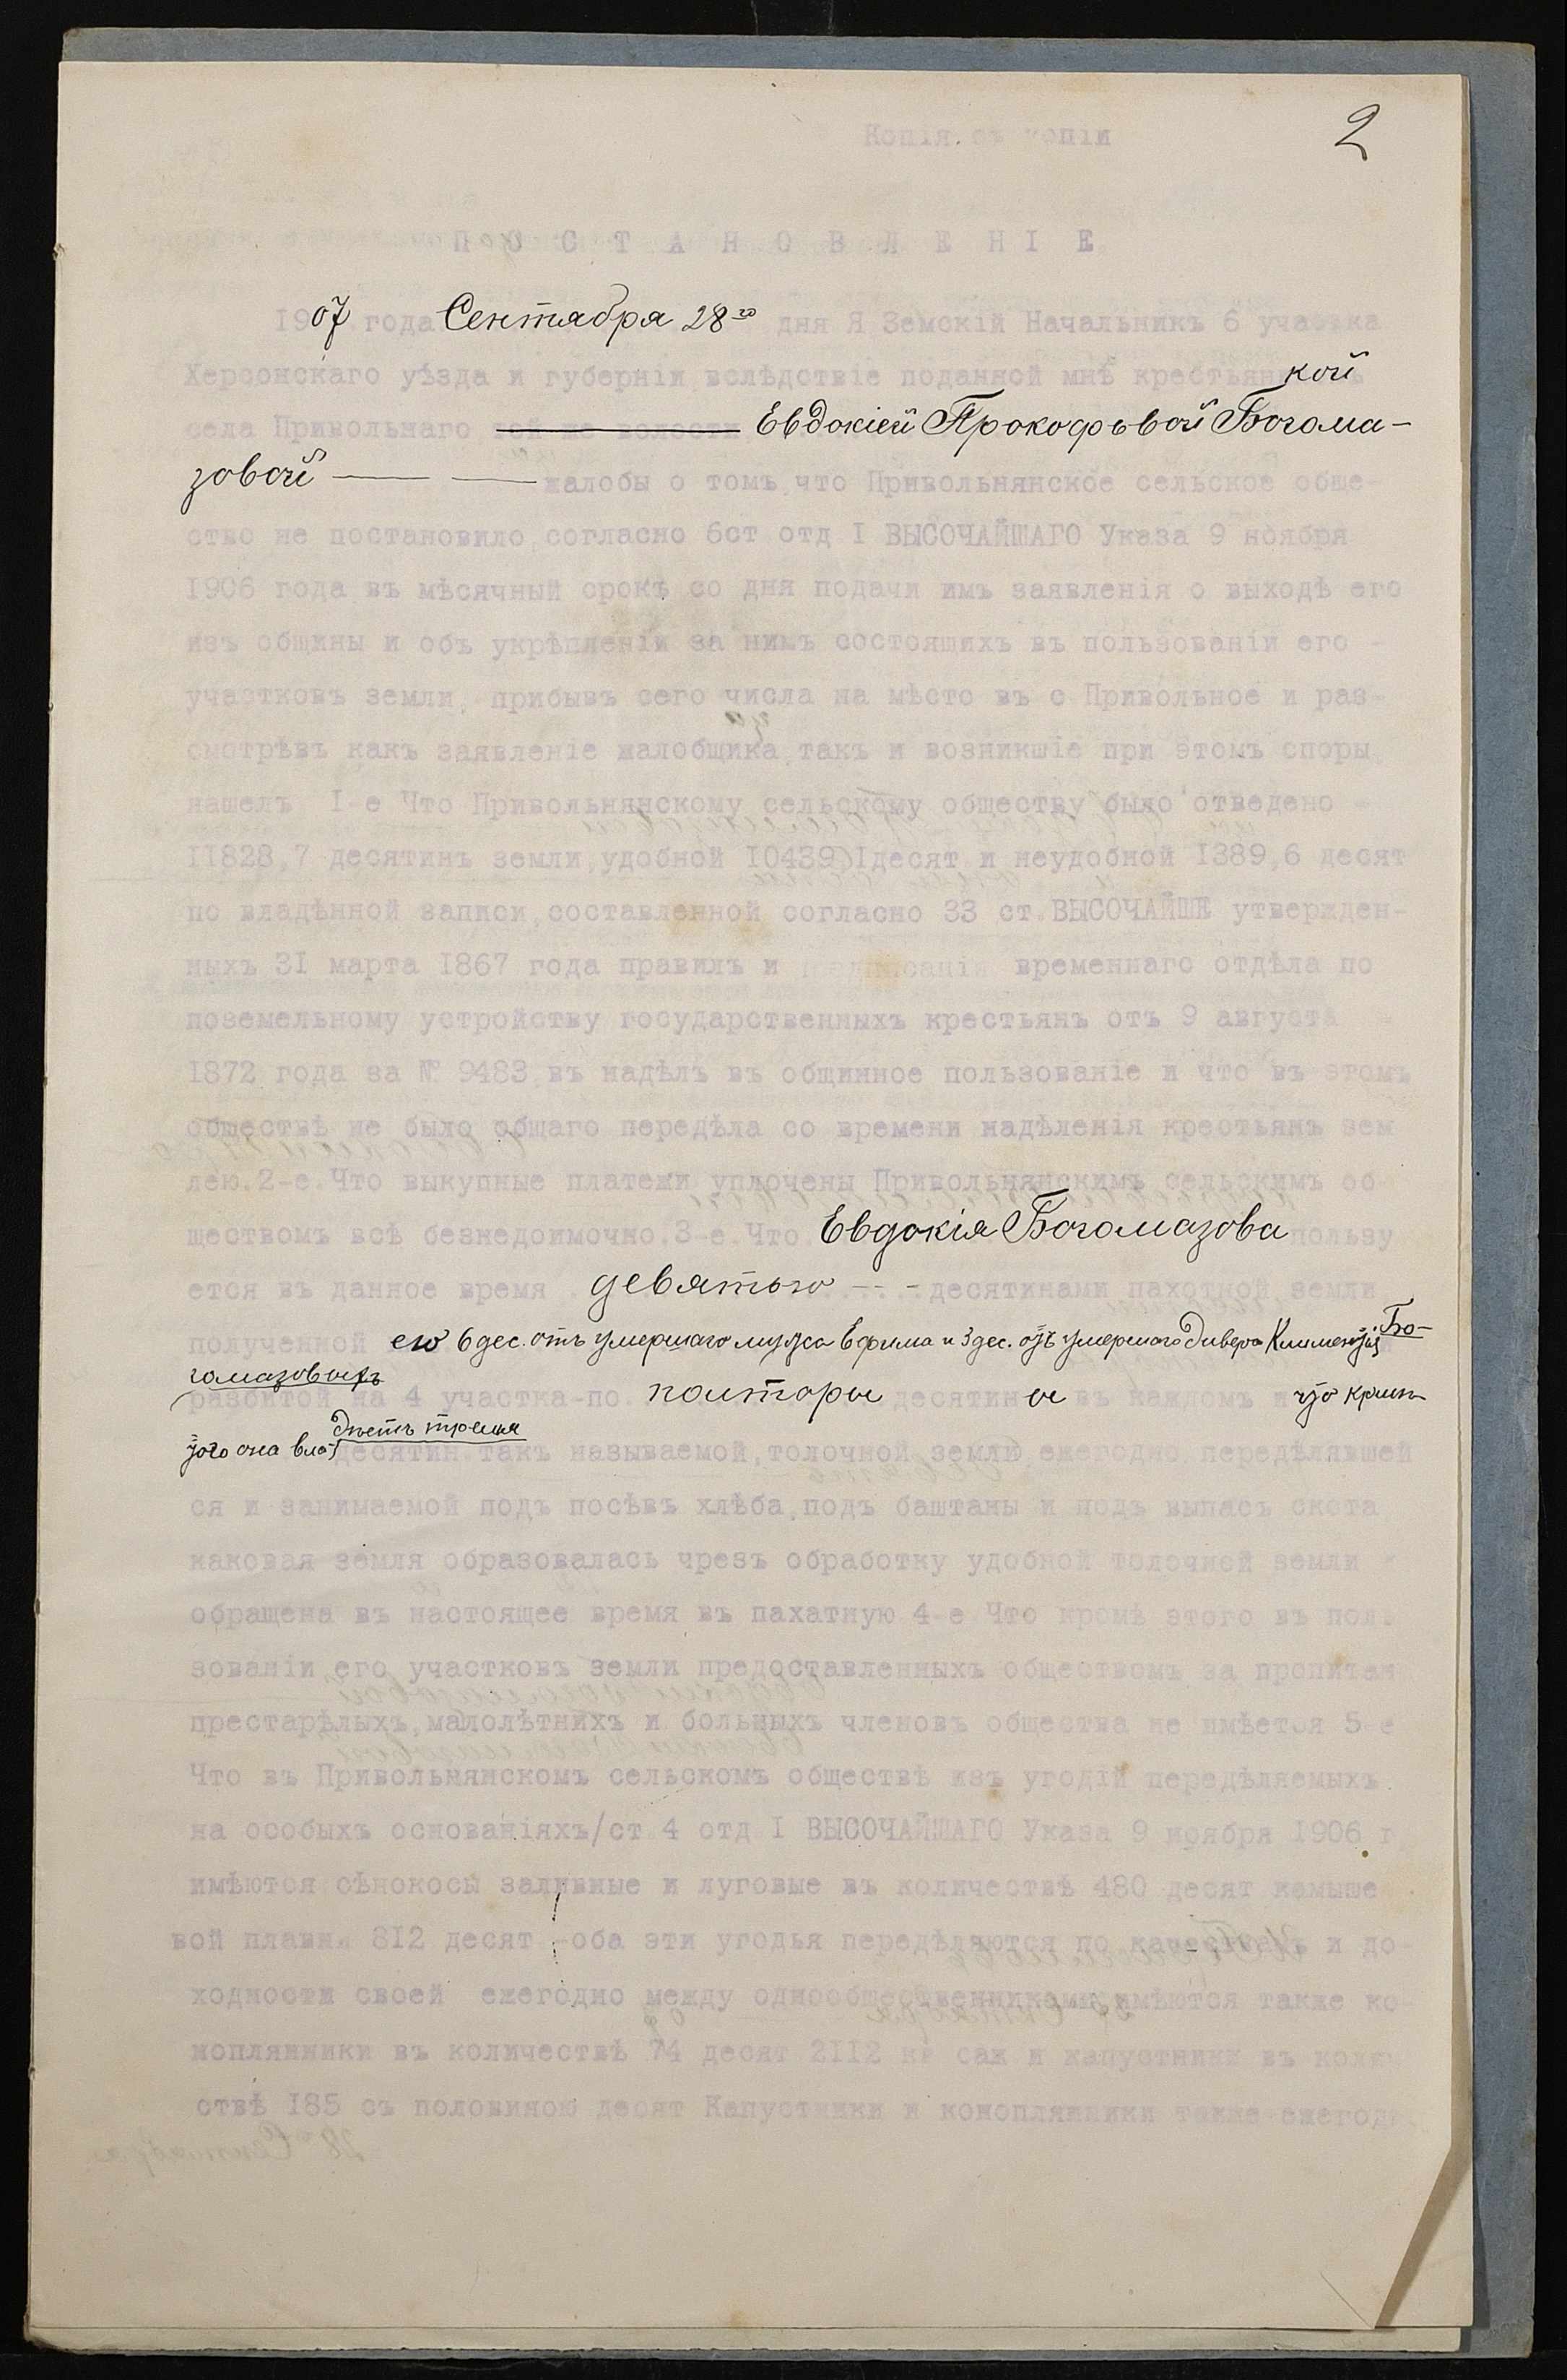 Копія съ копіи
2
ПОСТАНОВЛЕНІЕ
1907 года Сентября 28го дня Я Земскій Начальникъ 6 участка
Херсонскаго уѣзда и губерніи вслѣдствіе поданной мнѣ крестьянкой
села Привольнаго той же волости Евдокіей Прокофьевой Богома-
зовой — — жалобы о томъ, что Привольнянское сельское обще-
ство не постановило, согласно 6ст отд I ВЫСОЧАЙШАГО Указа 9 ноября
1906 года въ мѣсячный срокъ со дня подачи имъ заявленія о выходѣ его
изъ общины и объ укрѣпленіи за нимъ состоящихъ въ пользованіи его -
участковъ земли, прибывъ сего числа на мѣсто въ с Привольное и раз-
смотрѣвъ какъ заявленіе жалобщика, такъ и возникшіе при этомъ споры,
нашелъ I-е Что Привольнянскому сельскому обществу было отведено -
11828,7 десятинъ земли, удобной 10439,1десят и неудобной 1389,6 десят
по владѣнной записи, составленной согласно 33 ст ВЫСОЧАЙШЕ утвержден-
ныхъ 31 марта 1867 года правилъ и предписанія временнаго отдѣла по
поземельному устройству государственныхъ крестьянъ отъ 9 августа -
1872 года за № 9483, въ надѣлъ въ общинное пользованіе и что въ этомъ
обществѣ не было общаго передѣла со времени надѣленія крестьянъ зем
лею. 2-е. Что выкупные платежи уплочены Привольнянскимъ сельскимъ об-
ществомъ всѣ безнедоимочно. 3-е. Что Евдокія Богомазова пользу
ется въ данное время девятью - - - десятинами пахотной земли
полученной ею 6 дес. отъ умершаго мужа Ефима и 3 дес. отъ умершаго дивера Климентія Бо-
гомазовыхъ
разбитой на 4 участка-по полторы десятины въ каждомъ и что кромѣ
того она вла-
дѣетъ тремя
десятин такъ называемой, толочной земли ежегодно передѣлявшей
ся и занимаемой подъ посѣвъ хлѣба, подъ баштаны и подъ выпасъ скота
каковая земля образовалась чрезъ обработку удобной толочной земли -
обращена въ настоящее время въ пахатную 4-е Что кромѣ этого въ поль
зованіи его участковъ земли предоставленныхъ обществомъ за пропитан
престарѣлыхъ, малолѣтнихъ и больныхъ членовъ общества не имѣется 5-е
Что въ Привольнянскомъ сельскомъ обществѣ изъ угодій передѣляемыхъ
на особыхъ основаніяхъ/ст 4 отд I ВЫСОЧАЙШАГО Указа 9 ноября 1906 г
имѣются сѣнокосы заливные и луговые въ количествѣ 480 десят камыше
вой плавни 812 десят -оба эти угодья передѣляются по качествамъ и до-
ходности своей ежегодно между однообщественниками имѣются также ко-
ноплянники въ количествѣ 74 десят 2112 кв саж и капустники въ коли
ствѣ 185 съ половиною десят Капустники и коноплянники также ежегод